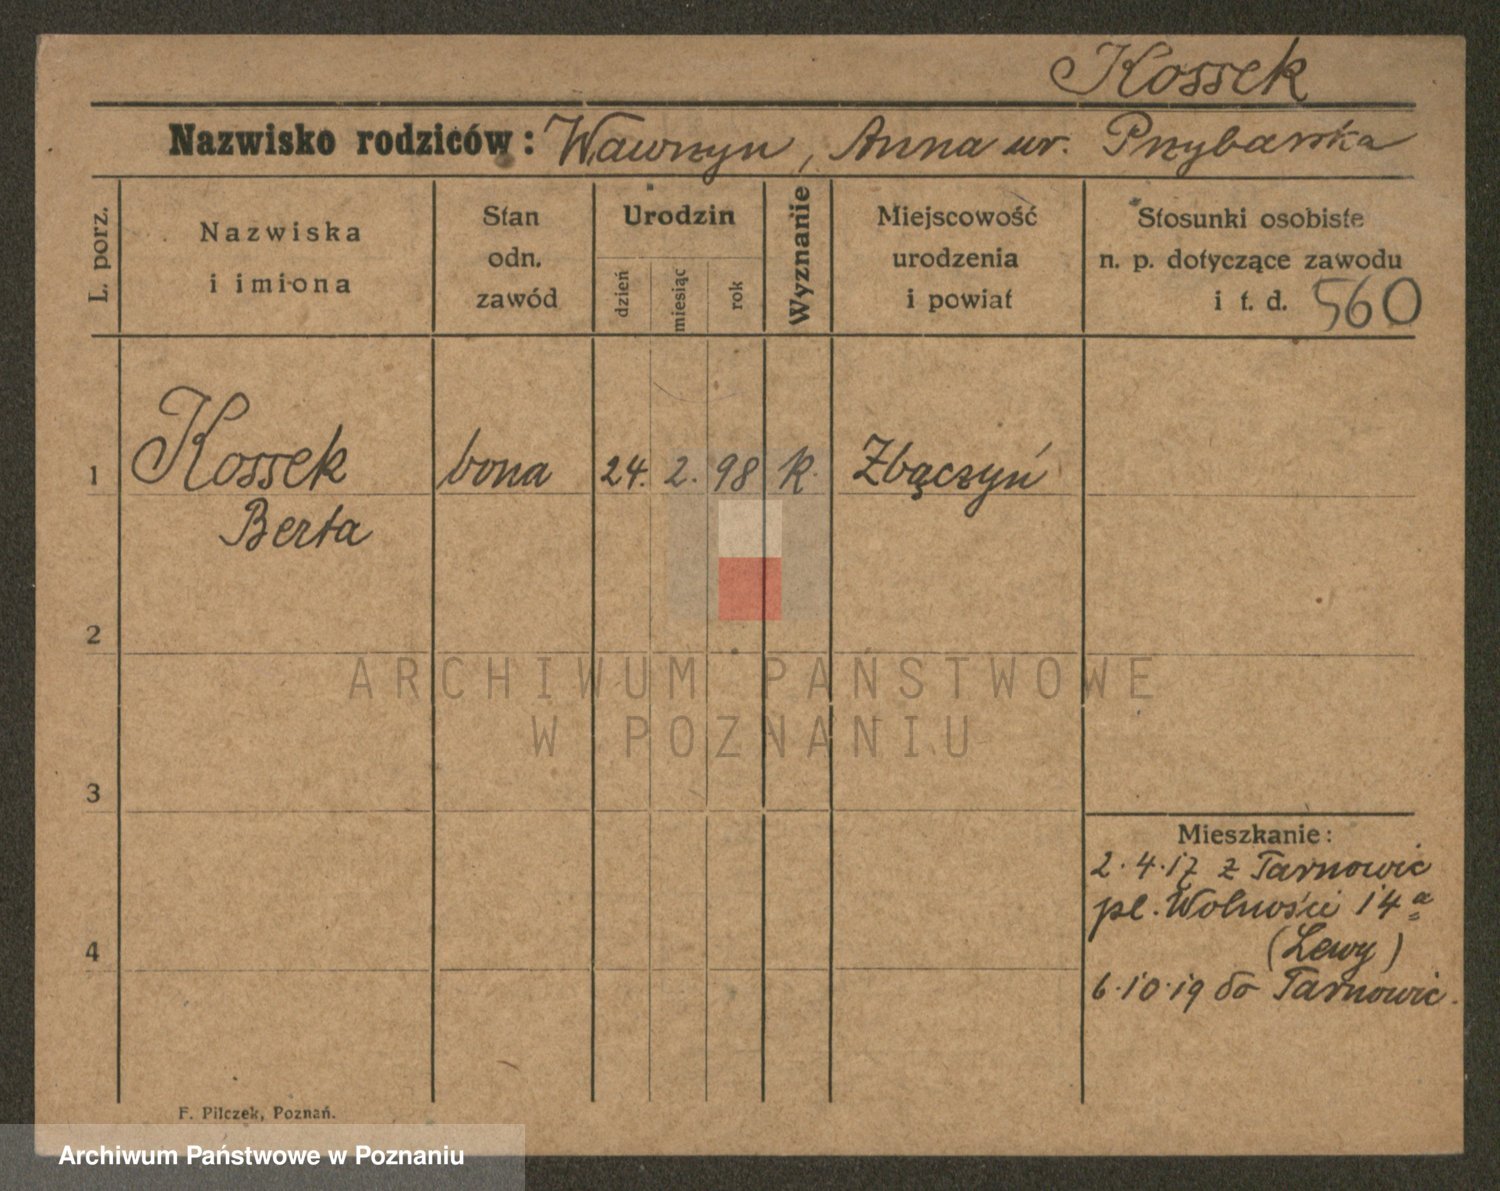 Kossek
Nazwisko rodziców: Wawrzyn, Anna ur. Przybarska
L. porz.
Nazwiska
i imiona
Stan
odn.
zawód
Urodzin
dzień
miesiąc
rok
Wyznanie
Miejscowość
urodzenia
i powiat
Stosunki osobiste
n. p. dotyczące zawodu
i t. d. 560
1 Kossek bona 24. 2. 98 k. Zbączyń
Berta
2
3
4
ARCHIWUM PAŃSTWOWE
W POZNANIU
Mieszkanie:
2.4.17 z Tarnowic
pl. Wolności 14a
(Lewy)
6.10.19 do Tarnowic.
F. Pilczek, Poznań.
Archiwum Państwowe w Poznaniu